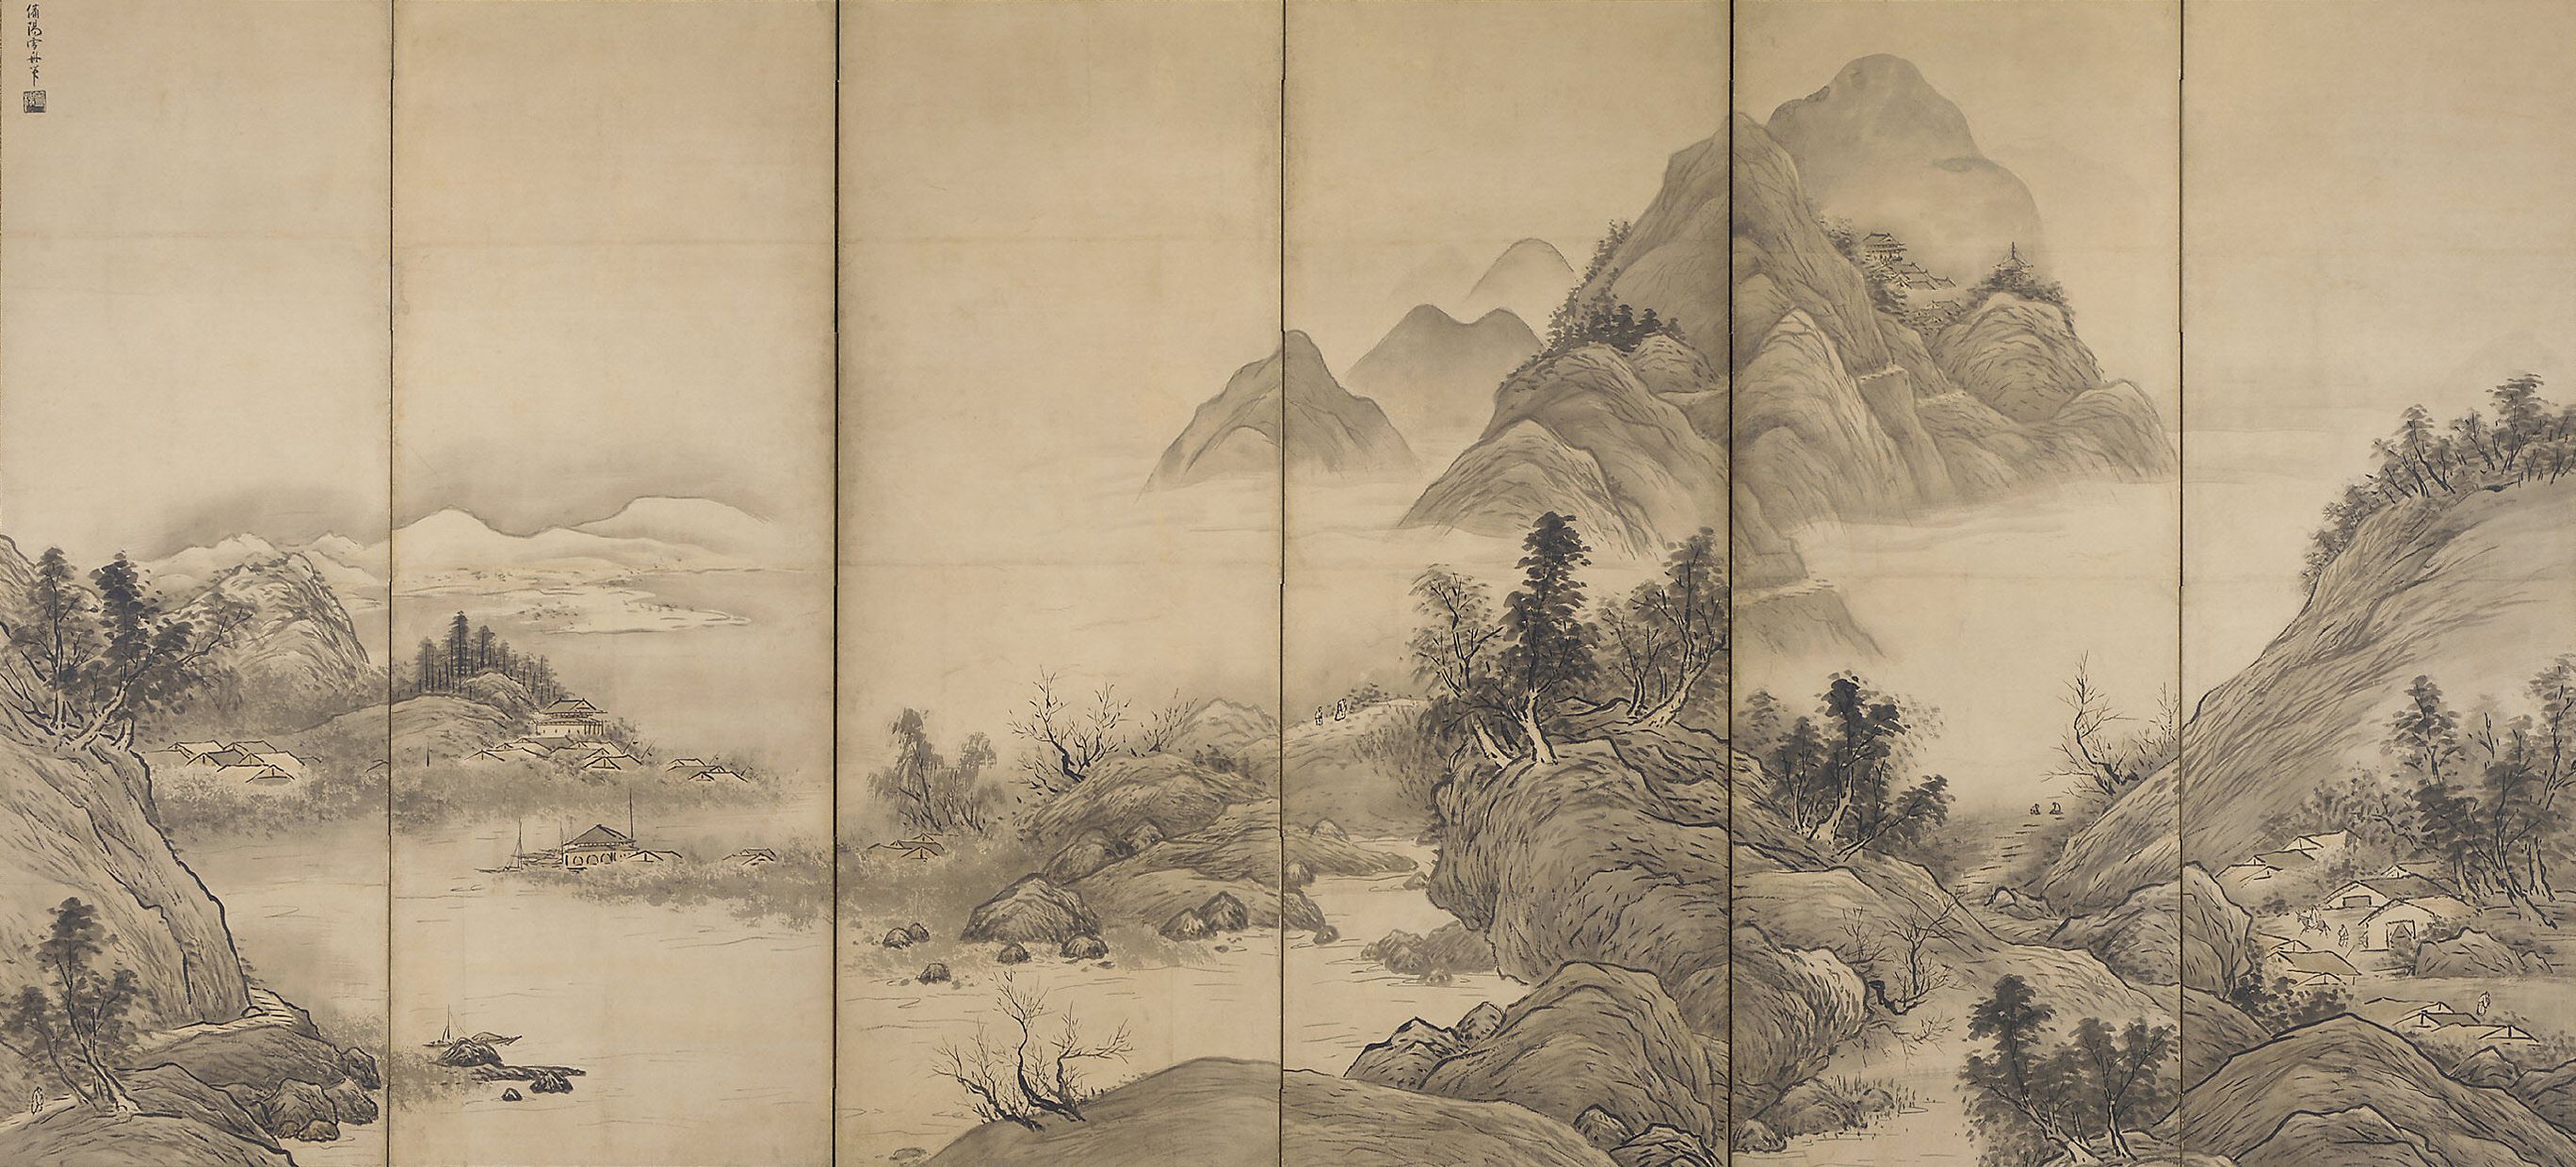 備陽雲舟筆